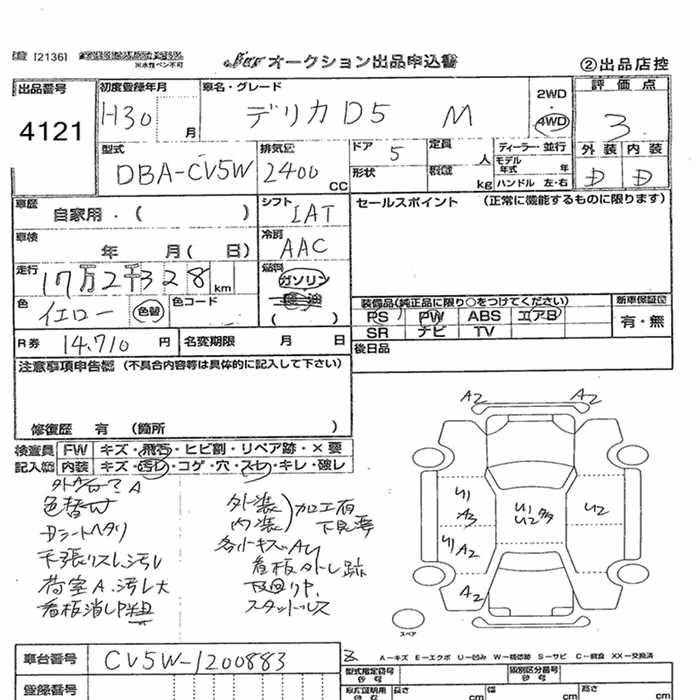 [2136]
※水性ペン不可
オークション出品申込書
②出品店控
出品番号 初度登録年月 車名・グレード 2WD 評価点
4121 H30 月 デリカD5 M 4WD 3
型式 排気量 ドア 定員 ディーラー・並行 外装 内装
DBA-CV5W 2400 CC 5 人 モデル年式 年 D D
形状 積載 kg ハンドル 左・右
車歴 自家用・( ) シフト IAT セールスポイント (正常に機能するものに限ります)
車検 年 月( 日) 冷房 AAC
走行 17万2千328km 燃料 ガソリン
軽油
色 イエロー 色替 色コード ( ) 装備品(純正品に限り○をつけてください) 新車保証書
PS PW ABS エアB 有・無
SR ナビ TV
R券 14,710 円 名変期限 月 日 後日品
注意事項申告欄 (不具合内容等は具体的に記入して下さい)
修復歴 有 (箇所 )
検査員 FW キズ・飛石・ヒビ割・リペア跡・×要
記入欄 内装 キズ・汚レ・コゲ・穴・スレ・キレ・破レ
色替W
Dシートヘタリ
天張リスレ汚レ
荷室A、汚レ大
看板消し
外装
内装 加工有
下廻サビ
各小キズAU
看板外し跡
スタッドレス
A2 A2
U1 A3 U1 U2多 U2
U1 A2
A2
スペア
A-キズ E-エクボ U-凹み W-補修跡 S-サビ C-腐食 XX-交換済
車台番号 CV5W-1200883 型式指定番号 類別区分番号
登録番号 長さ cm 幅 cm 高さ cm